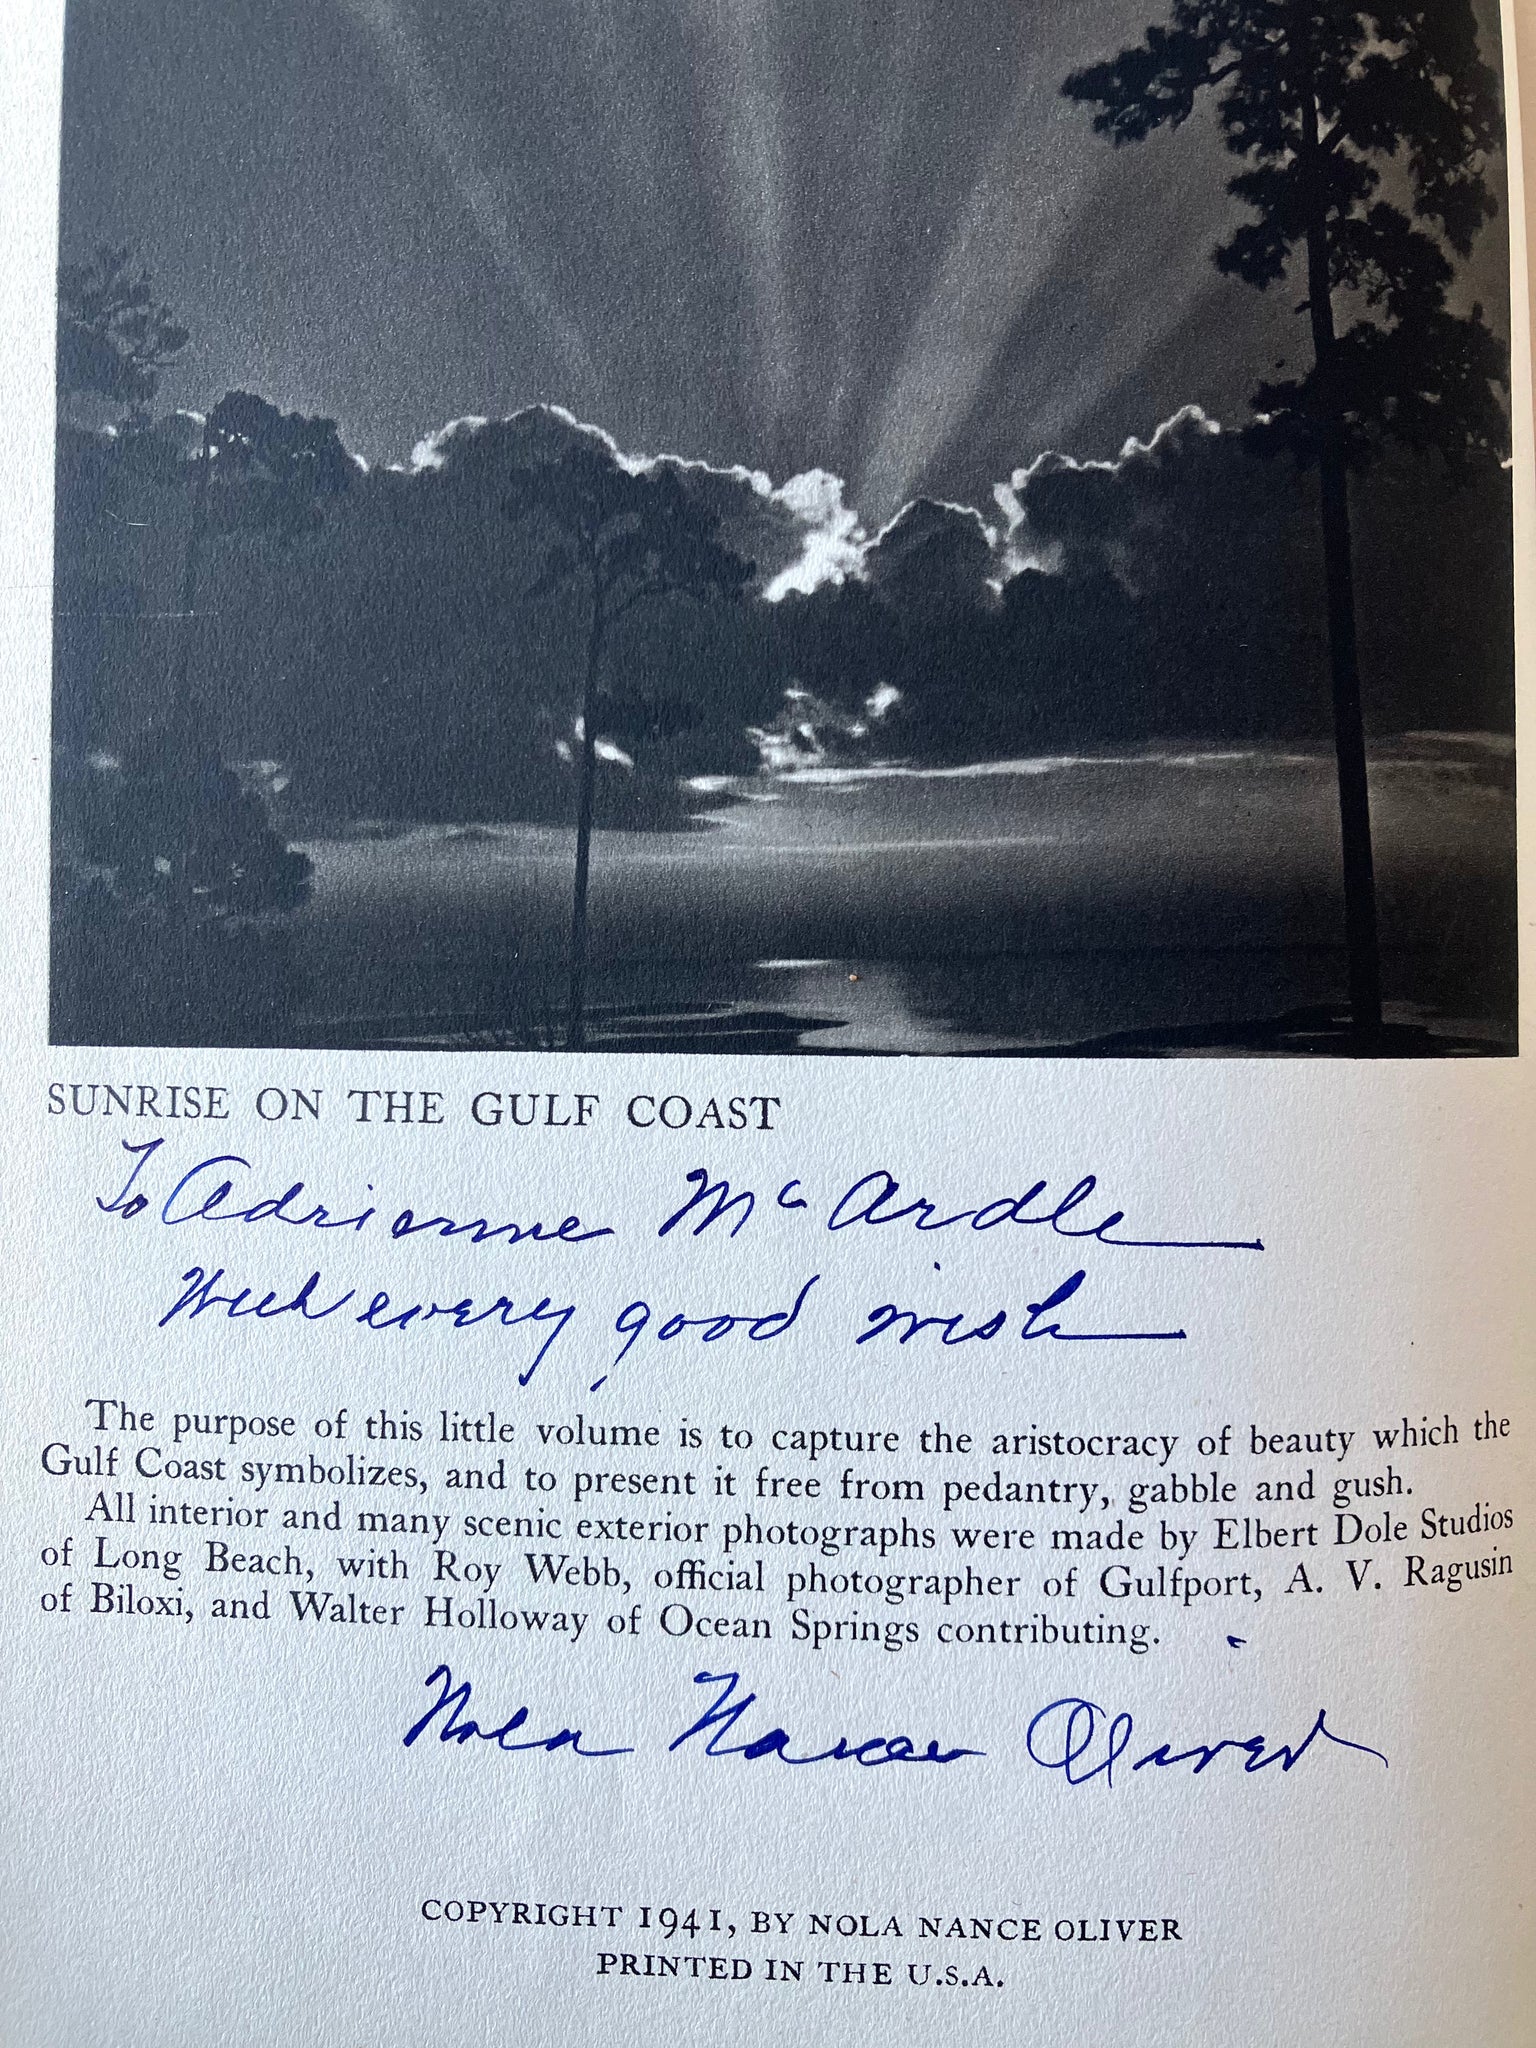 SUNRISE ON THE GULF COAST
To Adrienne McArdle
With every good wish
The purpose of this little volume is to capture the aristocracy of beauty which the
Gulf Coast symbolizes, and to present it free from pedantry, gabble and gush.
All interior and many scenic exterior photographs were made by Elbert Dole Studios
of Long Beach, with Roy Webb, official photographer of Gulfport, A. V. Ragusin
of Biloxi, and Walter Holloway of Ocean Springs contributing.
Nola Nance Oliver
COPYRIGHT 1941, BY NOLA NANCE OLIVER
PRINTED IN THE U.S.A.